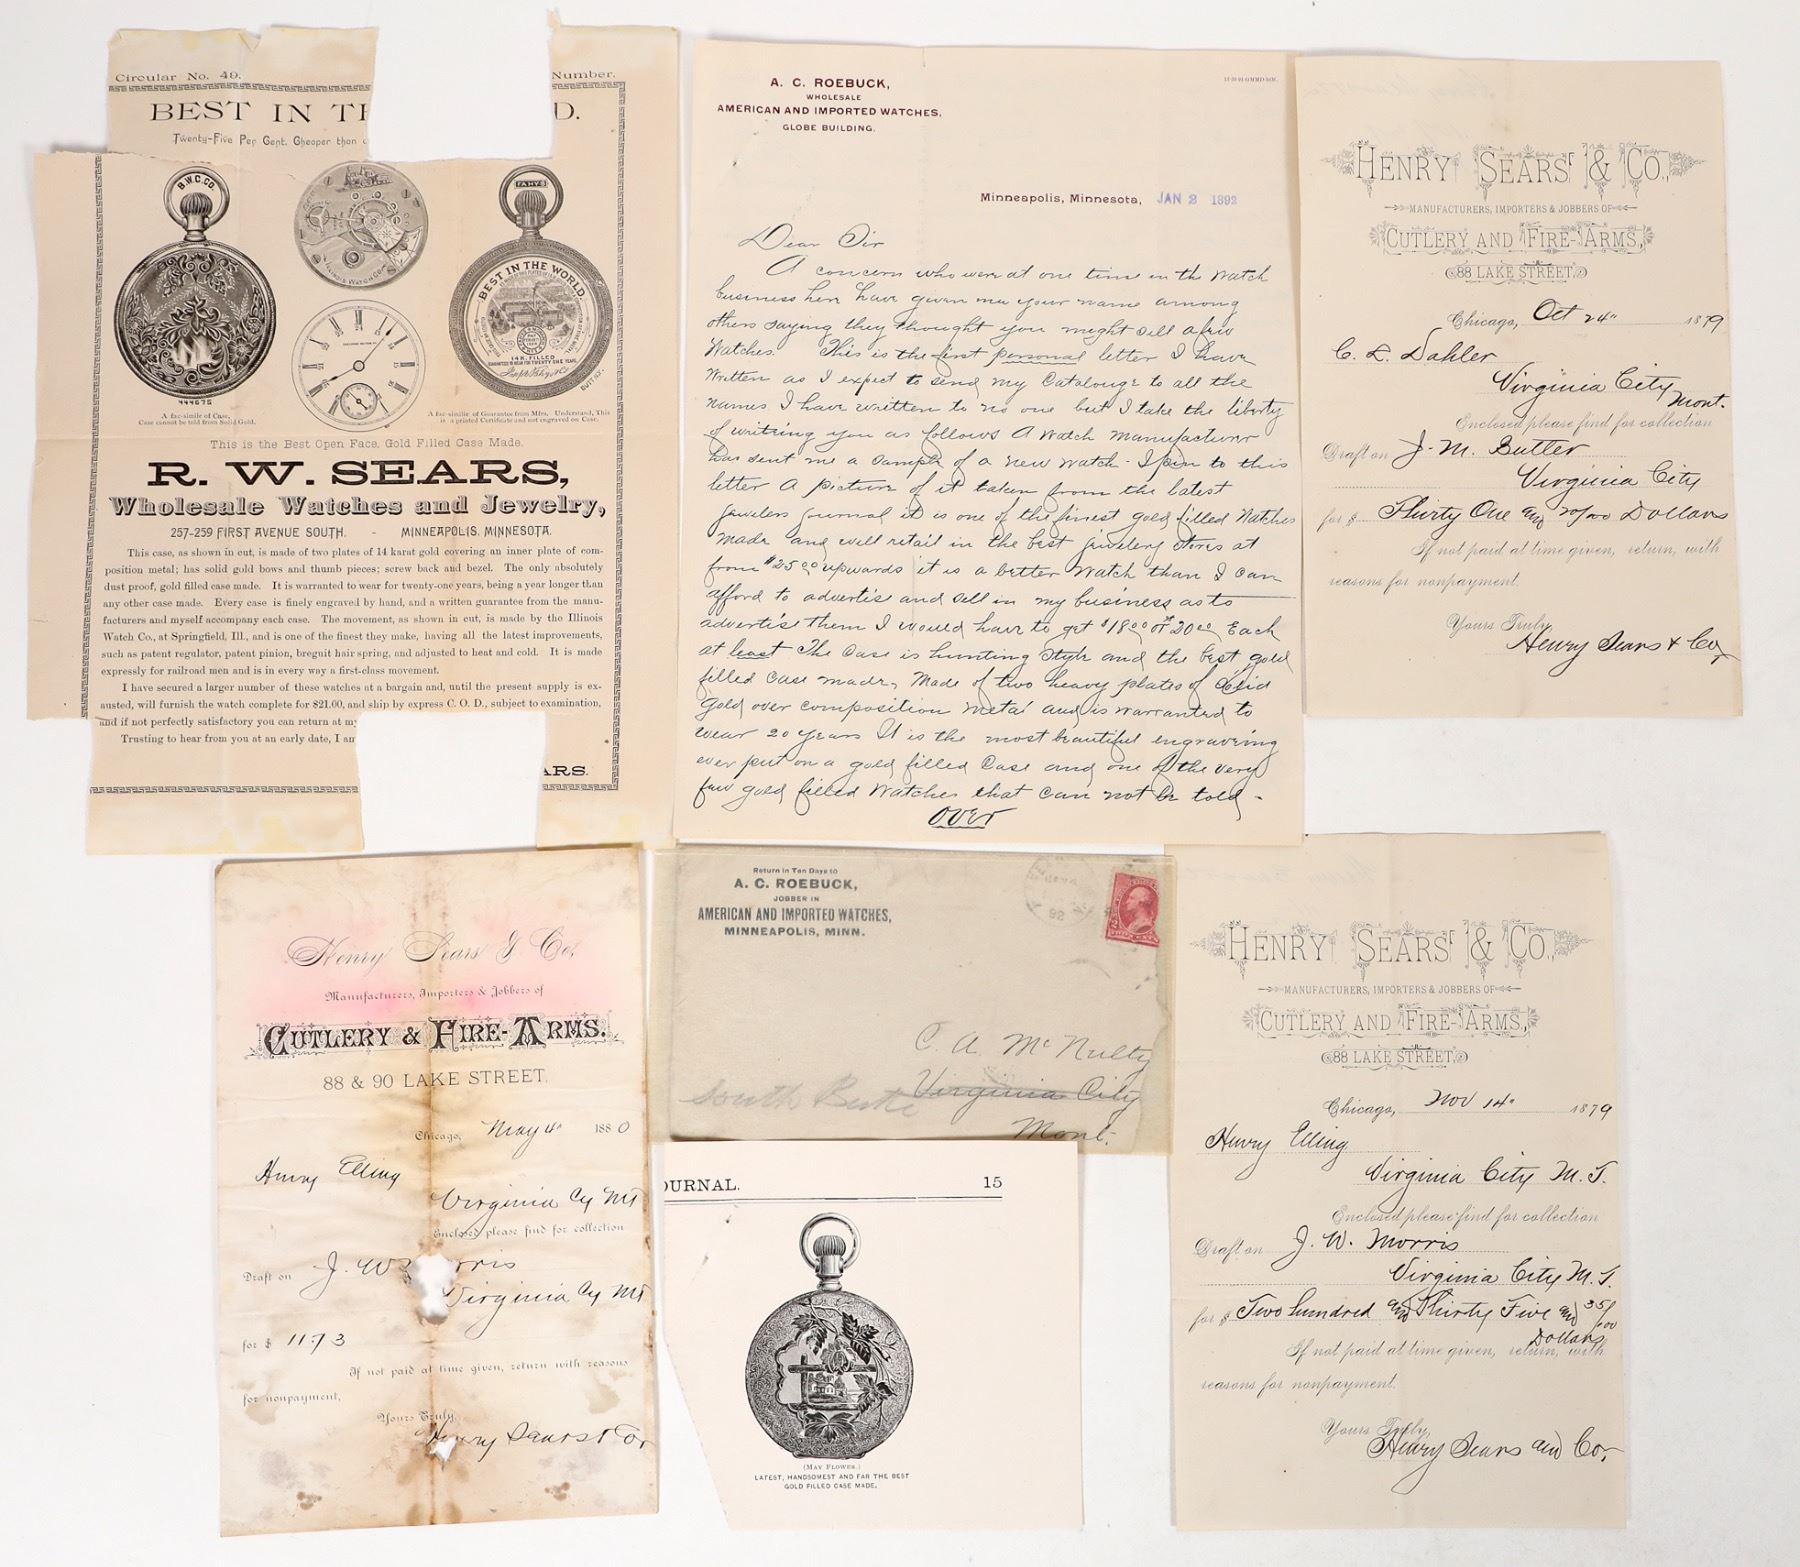 Circular No. 49.
Number.
BEST IN TH
D.
Twenty-Five Per Cent. Cheaper than
B.W.C.CO.
FAHYS
ILLINOIS WATCH CO.
BEST IN THE WORLD.
14 K. FILLED
444675
A fac-simile of Case,
Case cannot be told from Solid Gold.
A fac-simile of Guarantee from Mfrs. Understand, This
is a printed Certificate and not engraved on Case.
This is the Best Open Face, Gold Filled Case Made.
R. W. SEARS,
Wholesale Watches and Jewelry,
257-259 FIRST AVENUE SOUTH. - MINNEAPOLIS, MINNESOTA.
This case, as shown in cut, is made of two plates of 14 karat gold covering an inner plate of com-
position metal; has solid gold bows and thumb pieces; screw back and bezel. The only absolutely
dust proof, gold filled case made. It is warranted to wear for twenty-one years, being a year longer than
any other case made. Every case is finely engraved by hand, and a written guarantee from the manu-
facturers and myself accompany each case. The movement, as shown in cut, is made by the Illinois
Watch Co., at Springfield, Ill., and is one of the finest they make, having all the latest improvements,
such as patent regulator, patent pinion, breguit hair spring, and adjusted to heat and cold. It is made
expressly for railroad men and is in every way a first-class movement.
I have secured a larger number of these watches at a bargain and, until the present supply is ex-
austed, will furnish the watch complete for $21.00, and ship by express C. O. D., subject to examination,
and if not perfectly satisfactory you can return at my
Trusting to hear from you at an early date, I am
ARS.
A. C. ROEBUCK,
WHOLESALE
AMERICAN AND IMPORTED WATCHES,
GLOBE BUILDING.
Minneapolis, Minnesota, JAN 2 1892
Dear Sir
A concern who were at one time in the Watch
business here have given me your name among
others saying they thought you might sell a few
Watches. This is the first personal letter I have
Written as I expect to send my Catalouge to all the
names I have written to no one but I take the liberty
of writing you as follows A Watch manufacturer
has sent me a sample of a new Watch - I pin to this
letter A picture of it taken from the latest
jewelers journal it is one of the finest gold filled Watches
made and will retail in the best jewelery stores at
from $25.00 upwards it is a better Watch than I can
afford to advertise and sell in my business as to
advertise them I would have to get $18.00 or $20.00 Each
at least The Case is hunting style and the best gold
filled case made, Made of two heavy plates of Solid
Gold over composition metal and is warranted to
wear 20 years It is the most beautiful engraving
ever put on a gold filled Case and one of the very
few gold filled Watches that can not be told -
Over
HENRY SEARS & CO.,
MANUFACTURERS, IMPORTERS & JOBBERS OF
CUTLERY AND FIRE-ARMS,
88 LAKE STREET.
Chicago, Oct 24" 1879
C. L. Dahler
Virginia City
Mont.
Enclosed please find for collection
Draft on J. M. Butler
Virginia City
for $ Thirty One and 20/100 Dollars
If not paid at time given, return, with
reasons for nonpayment.
Yours Truly,
Henry Sears & Co
Henry Sears & Co.
Manufacturers, Importers & Jobbers of
CUTLERY & FIRE-ARMS.
88 & 90 LAKE STREET.
Chicago, May 4" 1880
Henry Elling
Virginia Cy MT
Enclosed please find for collection
Draft on J. W. Morris
Virginia Cy MT
for $ 11.73
If not paid at time given, return with reasons
for nonpayment,
Yours Truly,
Henry Sears & Co
Return in Ten Days to
A. C. ROEBUCK,
JOBBER IN
AMERICAN AND IMPORTED WATCHES,
MINNEAPOLIS, MINN.
92
C. A. McNulty
South Butte Virginia City
Mont.
OURNAL. 15
(MAY FLOWER.)
LATEST, HANDSOMEST AND FAR THE BEST
GOLD FILLED CASE MADE.
HENRY SEARS & CO.,
MANUFACTURERS, IMPORTERS & JOBBERS OF
CUTLERY AND FIRE-ARMS,
88 LAKE STREET.
Chicago, Nov 14" 1879
Henry Elling
Virginia City M. T.
Enclosed please find for collection
Draft on J. W. Morris
Virginia City M. T.
for $ Two Hundred and Thirty Five and 35/100
Dollars
If not paid at time given, return, with
reasons for nonpayment.
Yours Truly,
Henry Sears and Co.